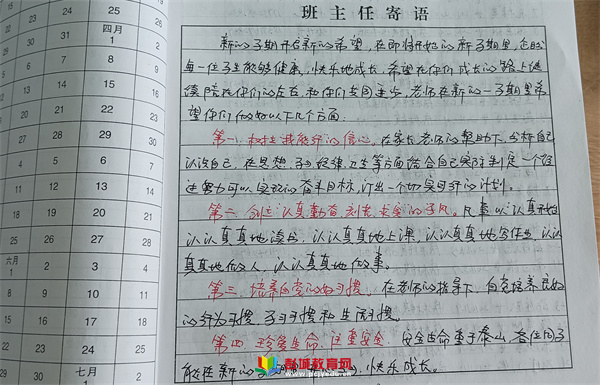 班主任寄语
新的学期开启新的希望，在即将开始的新学期里，企盼
每一位学生能够健康、快乐地成长。希望在你们成长的路上继
续陪在你们的左右，和你们共同进步。老师在新的一学期里希
望你们做如以下几个方面：
第一、树立我能行的信心。在家长老师的帮助下，分析自己
认识自己，在思想、学习、纪律、卫生等方面结合自己实际制定一个经
过努力可以实现的奋斗目标，订出一个切实可行的计划。
第二、创立认真勤奋、刻苦、求实的学风。凡事以认真开始
认认真真地读书，认认真真地上课，认认真真地写作业，认认
真真地做人，认认真真地做事。
第三、培养自觉的好习惯。在老师的指导下，自觉培养良好
的行为习惯、学习习惯和生活习惯。
第四、珍爱生命、注重安全。安全生命重于泰山，各位同学
能在新的学期 快乐成长。
彭城教育网
www.pcjyedu.cn
24 25 四月 1 2
7 8 9
14 15 16
21 22 23
28 29 30
5 6 7
12 13 14
19 20 21
26 27 28
六月 1 2 3 4
8 9 10 11
15 16 17 18
22 23 24 25
29 30 七月 1 2